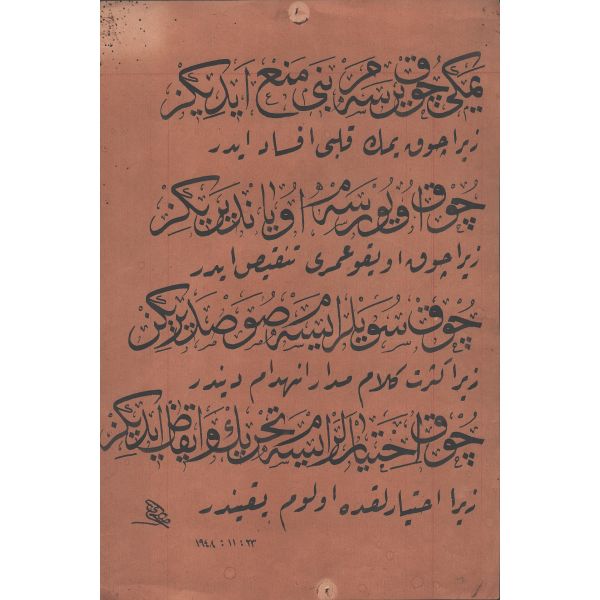 یمكی چوق یرسه م بنی منع ایدیكز
زیرا چوق یمك قلبی افساد ایدر
چوق اویورسه م اویاندیریكز
زیرا چوق اویقو عمری تنقیص ایدر
چوق سویلر ایسه م صوصدیریكز
زیرا كثرت كلام مدار انهدام دیندر
چوق احتیارلر ایسه م تحریك و ایقاظ ایدیكز
زیرا احتیارلقده اولوم یقیندر
٢٣ : ١١ : ١٩٤٨